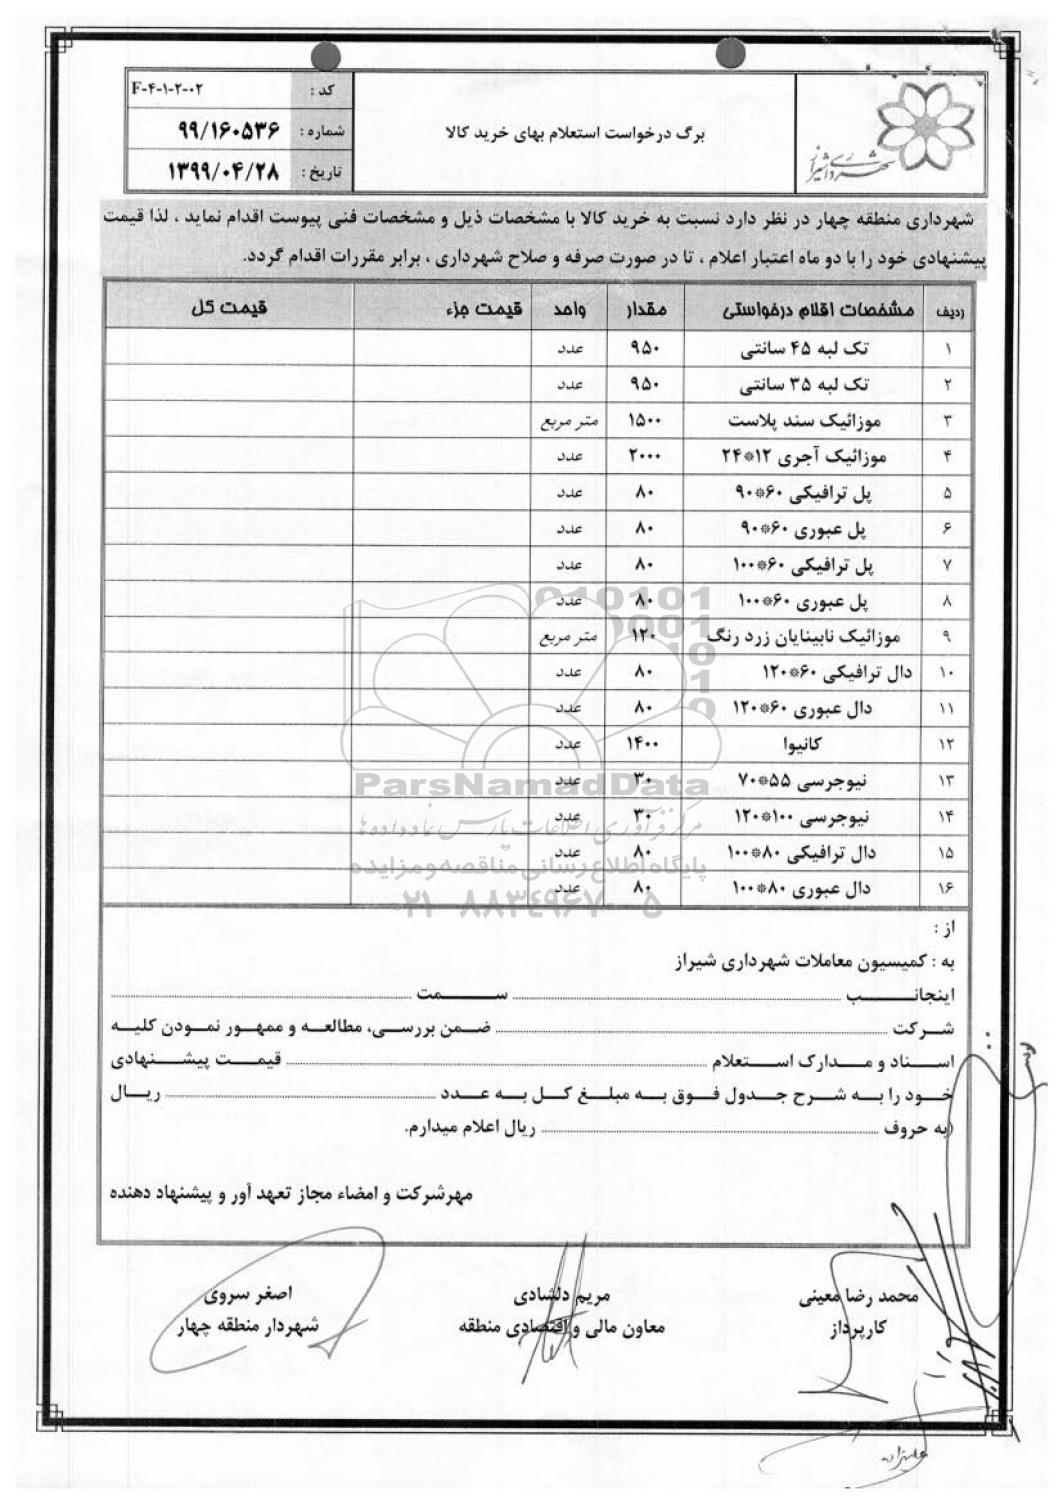 شهرداری شیراز
برگ درخواست استعلام بهای خرید کالا
کد : F-۴-۱-۲-۰۲
شماره : ۹۹/۱۶۰۵۳۶
تاریخ : ۱۳۹۹/۰۴/۲۸
شهرداری منطقه چهار در نظر دارد نسبت به خرید کالا با مشخصات ذیل و مشخصات فنی پیوست اقدام نماید ، لذا قیمت
پیشنهادی خود را با دو ماه اعتبار اعلام ، تا در صورت صرفه و صلاح شهرداری ، برابر مقررات اقدام گردد.
ردیف مشخصات اقلام درخواستی مقدار واحد قیمت جزء قیمت کل
۱ تک لبه ۴۵ سانتی ۹۵۰ عدد
۲ تک لبه ۳۵ سانتی ۹۵۰ عدد
۳ موزائیک سند پلاست ۱۵۰۰ متر مربع
۴ موزائیک آجری ۱۲*۲۴ ۲۰۰۰ عدد
۵ پل ترافیکی ۶۰*۹۰ ۸۰ عدد
۶ پل عبوری ۶۰*۹۰ ۸۰ عدد
۷ پل ترافیکی ۶۰*۱۰۰ ۸۰ عدد
۸ پل عبوری ۶۰*۱۰۰ ۸۰ عدد
۹ موزائیک نابینایان زرد رنگ ۱۲۰ متر مربع
۱۰ دال ترافیکی ۶۰*۱۲۰ ۸۰ عدد
۱۱ دال عبوری ۶۰*۱۲۰ ۸۰ عدد
۱۲ کانیوا ۱۴۰۰ عدد
۱۳ نیوجرسی ۵۵*۷۰ ۳۰ عدد
۱۴ نیوجرسی ۱۰۰*۱۲۰ ۳۰ عدد
۱۵ دال ترافیکی ۸۰*۱۰۰ ۸۰ عدد
۱۶ دال عبوری ۸۰*۱۰۰ ۸۰ عدد
ParsNamadData
مرکز فرآوری اطلاعات پارس نماد داده ها
پایگاه اطلاع رسانی مناقصه و مزایده
۰۲۱-۸۸۳۴۹۶۷۰-۵
از :
به : کمیسیون معاملات شهرداری شیراز
اینجانب ........ سمت ........
شرکت ........ ضمن بررسی، مطالعه و ممهور نمودن کلیه
اسناد و مدارک استعلام ........ قیمت پیشنهادی
خود را به شرح جدول فوق به مبلغ کل به عدد ........ ریال
(به حروف ........ ریال اعلام میدارم.
مهرشرکت و امضاء مجاز تعهد آور و پیشنهاد دهنده
محمد رضا معینی
کارپرداز
مریم دلشادی
معاون مالی و اقتصادی منطقه
اصغر سروی
شهردار منطقه چهار
علیزاده